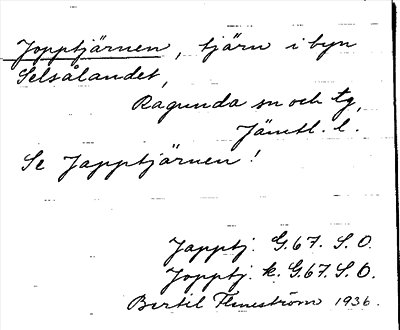 Jopptjärnen, tjärn i byn
Selsålandet,
Ragunda sn och tg,
Jämtl. l.
Se Japptjärnen!
Japptj. G.67. S.O.
Jopptj. k. G.67. S.O.
Bertil Flemström 1936.